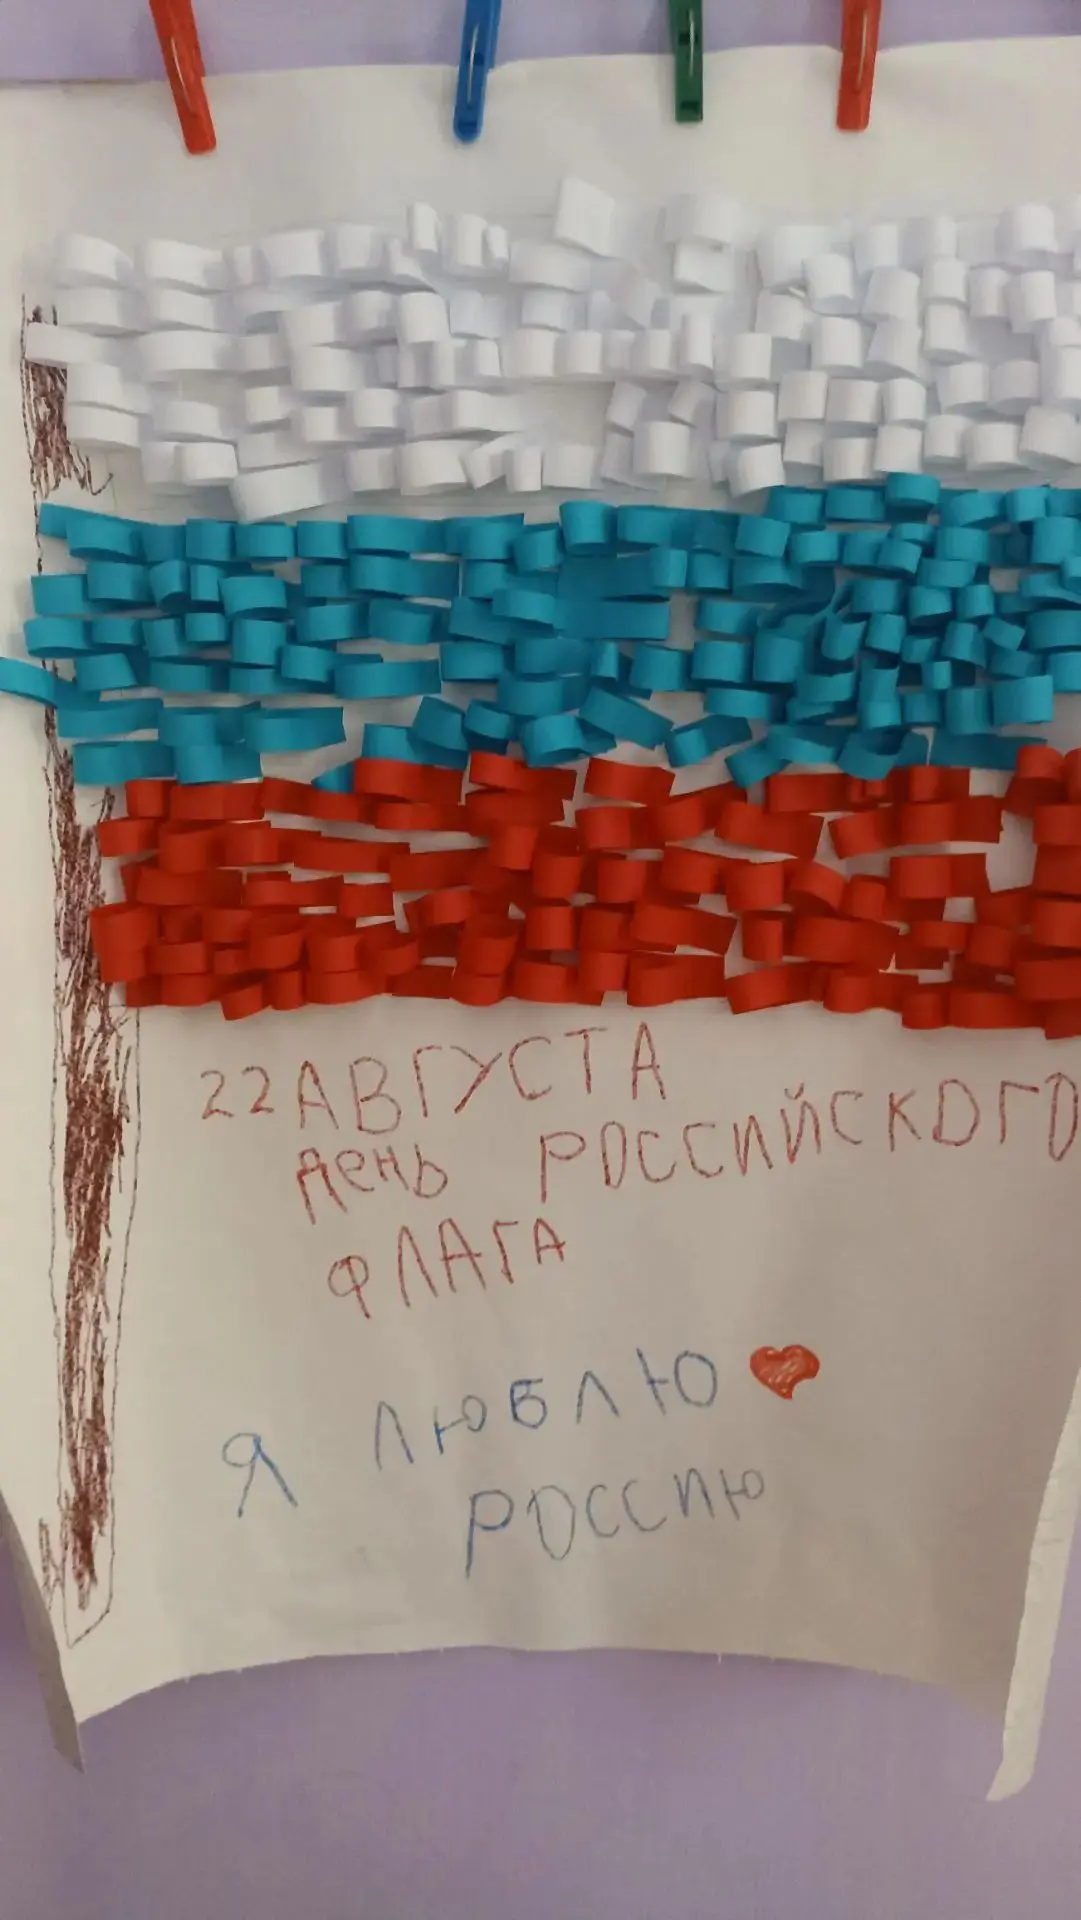 22 АВГУСТА
День РОССИЙСКОГО
ФЛАГА
Я ЛЮБЛЮ
РОССИЮ